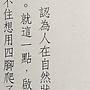 認為人在自然狀
。就這一點，啟
不住想用四腳爬了